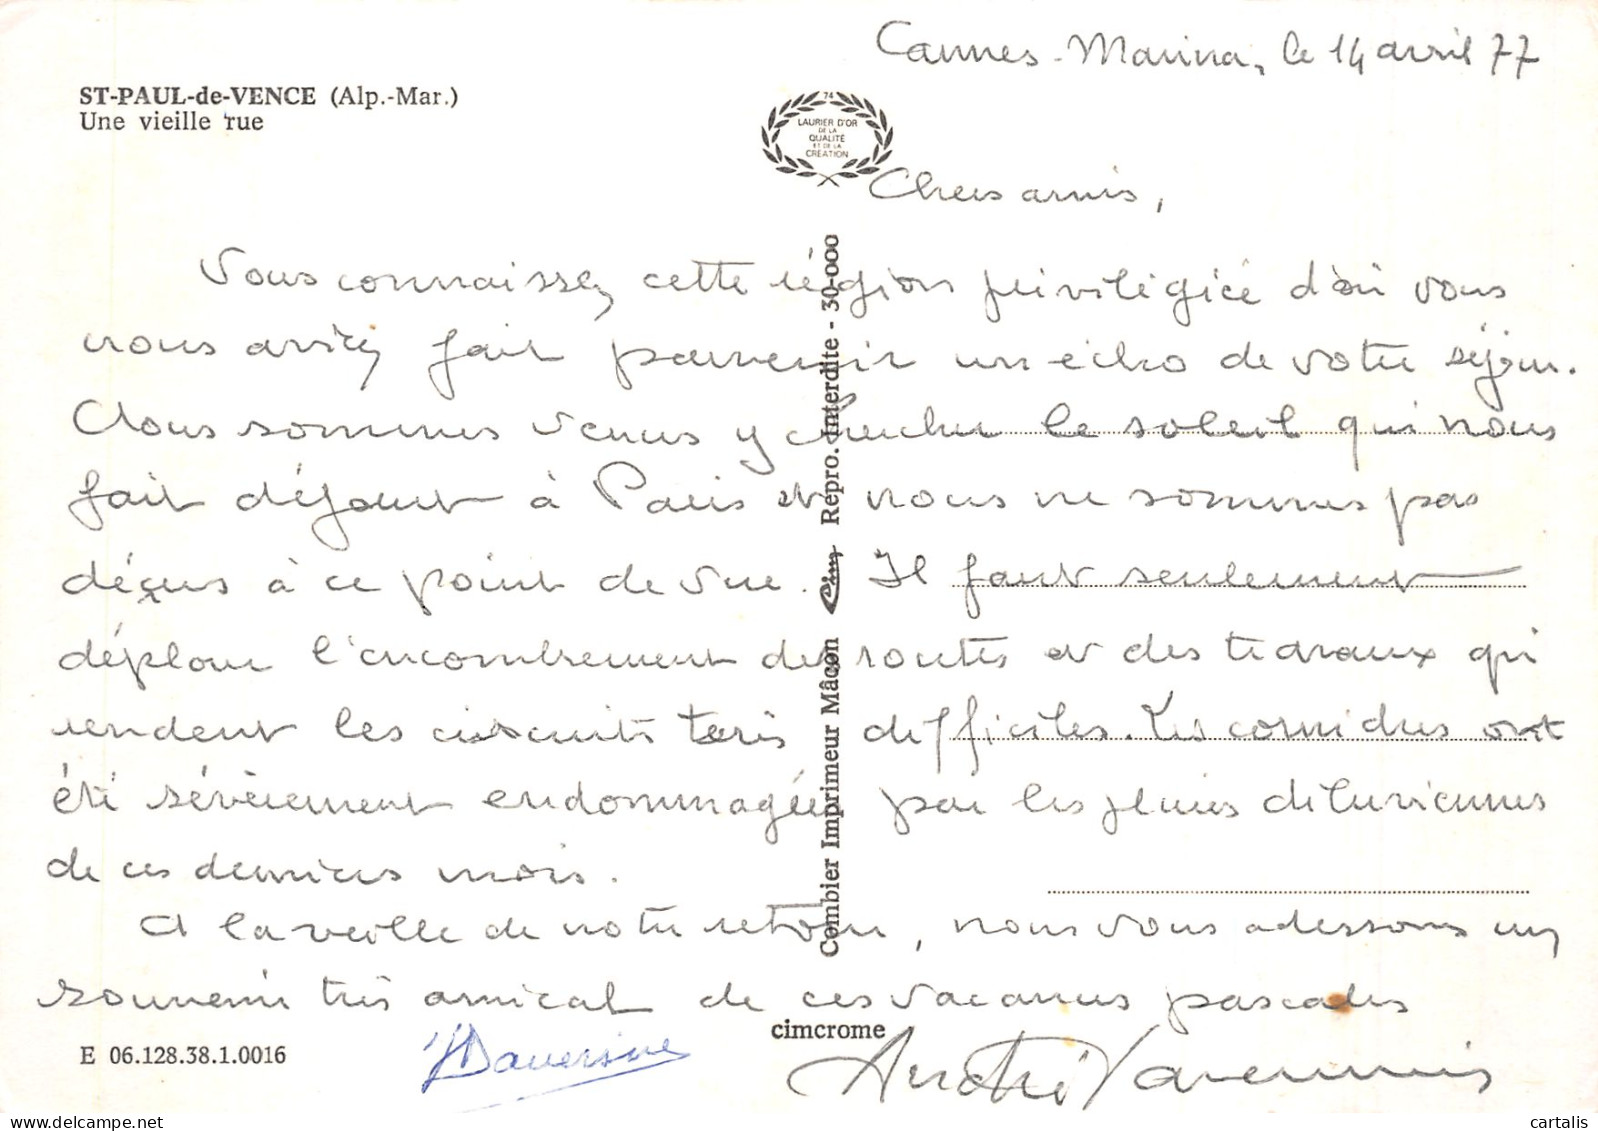 Cannes-Marina, le 14 avril 77
ST-PAUL-de-VENCE (Alp.-Mar.)
Une vieille rue
74
LAURIER D'OR
DE LA
QUALITÉ
ET DE LA
CRÉATION
Chers amis,
Vous connaissez cette région privilégiée d'où vous
nous aviez fait parvenir un écho de votre séjour.
Nous sommes venus y chercher le soleil qui nous
fait défaut à Paris et nous ne sommes pas
déçus à ce point de vue. Il faut seulement
déplorer l'encombrement des routes et des travaux qui
rendent les circuits très difficiles. Les corniches ont
été sévèrement endommagées par les pluies diluviennes
de ces derniers mois.
A la veille de notre retour, nous vous adressons un
souvenir très amical de ces vacances pascales
Combier Imprimeur Mâcon Cim Repro. Interdite - 30-000
cimcrome
E 06.128.38.1.0016
André
cartalis